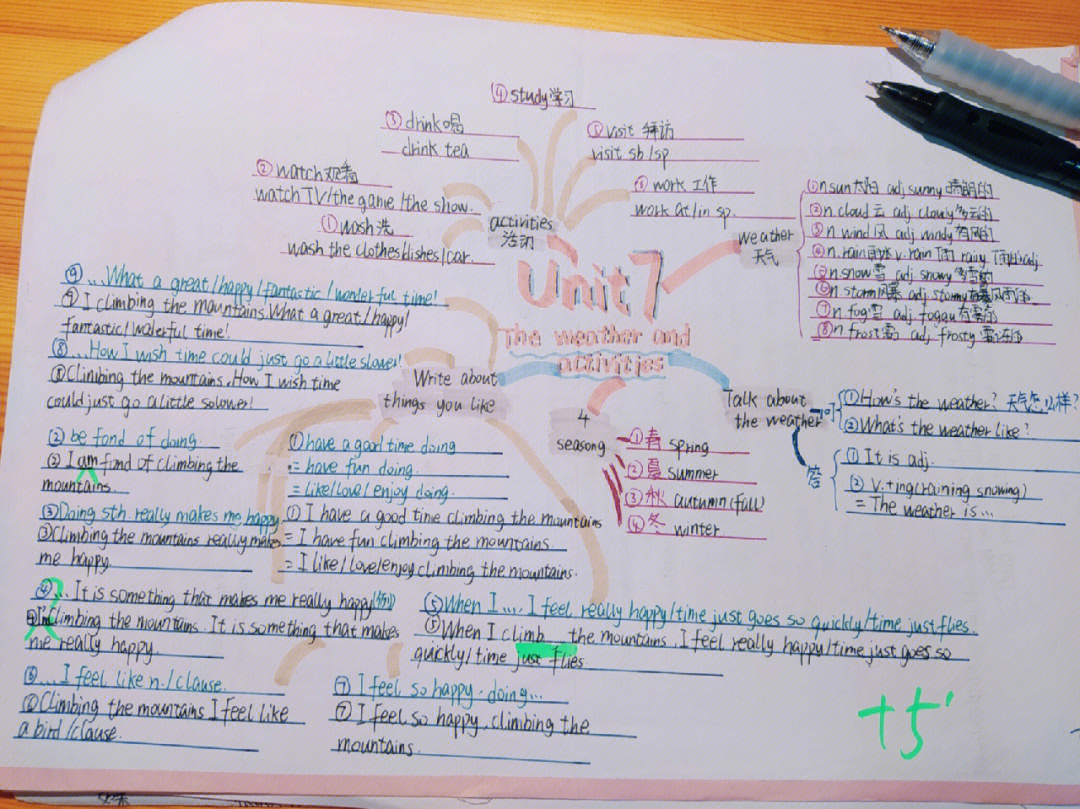 ④study学习
③drink喝
drink tea
⑤visit 拜访
visit sb/sp
②watch观看
watch TV/the game/the show.
⑥work 工作
work at/in sp.
①wash洗
wash the clothes/dishes/car.
activities
活动
weather
天气
①n.sun太阳 adj sunny 晴朗的
②n.cloud 云 adj cloudy多云的
③n.wind风 adj windy有风的
④n.rain雨水 v.rain 下雨 rainy 下雨的adj
⑤n.snow雪 adj snowy
⑥n storm风暴 adj stormy
⑦n fog雪 adj foggy
⑧n frost霜 adj frosty
Unit 7
The weather and
activities
⑨...What a great/happy/fantastic/wonderful time!
⑨I climbing the mountains.What a great/happy/
fantastic/woderful time!
⑧...How I wish time could just go a little slower!
⑧Climbing the mountains.How I wish time
could just go a little solower!
Write about
things you like
Talk about
the weather
问
①How's the weather? 天气怎么样?
②What's the weather like?
答
①It is adj.
②v.+ing(raining snowing)
= The weather is...
4
seasong
①春 spring
②夏 summer
③秋 autumn(fall)
④冬 winter
②be fond of doing.
②I am fond of climbing the
mountains.
③Doing sth. really makes me happy.
③Climbing the mountains really makes
me happy.
①have a good time doing
= have fun doing.
= like/love/enjoy doing.
①I have a good time climbing the mountains
= I have fun climbing the mountains
= I like/love/enjoy climbing the mountains.
④...It is something that makes me really happy
climbing the mountains. It is something that makes
me really happy.
⑤When I .... I feel really happy/time just goes so quickly/time just flies.
⑤When I climb the mountains, I feel really happy/time just goes so
quickly/time just flies
⑥...I feel like n./clause.
⑥Climbing the mountains I feel like
a bird/clause.
⑦I feel so happy. doing...
⑦I feel so happy. climbing the
mountains.
+5'